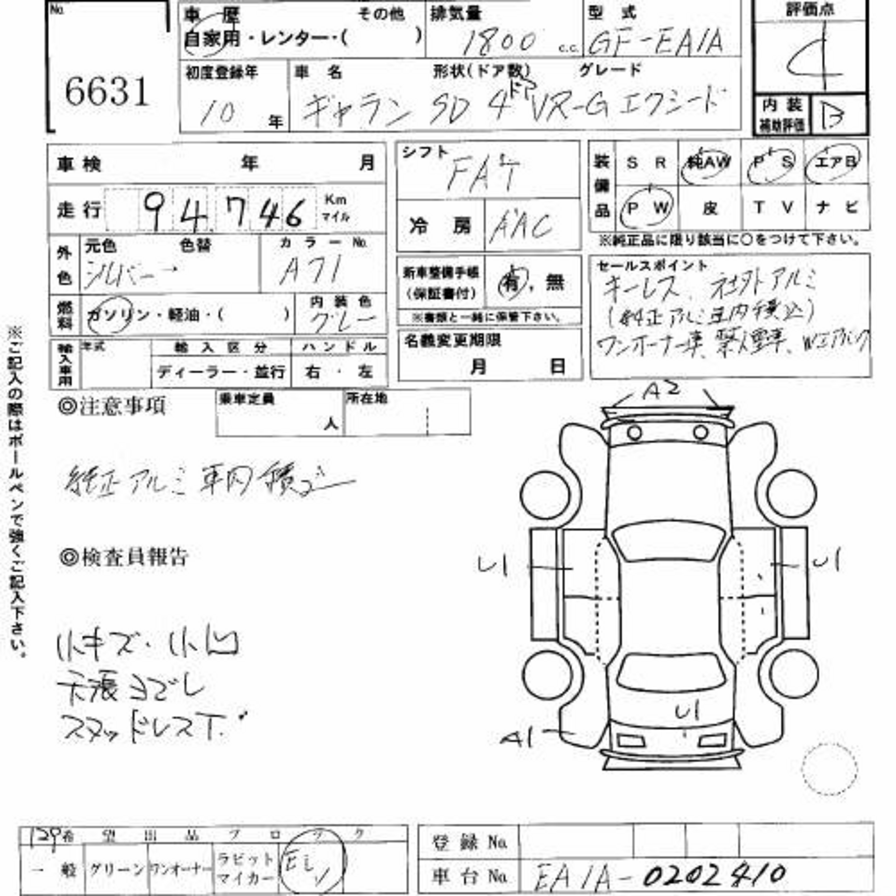 No. 6631
車歴 自家用・レンター・( ) その他
排気量 1800 c.c.
型式 GF-EA1A
評価点 4
初度登録年 10 年
車名 ギャラン
形状(ドア数) SD 4ドア
グレード VR-G エクシード
内装補助評価 B
車検 年 月
走行 94,746 Km マイル
シフト FAT
冷房 AAC
装備品 SR 純AW PS エアB
PW 皮 TV ナビ
※純正品に限り該当に○をつけて下さい。
外色 元色 シルバー→ 色替 カラーNo. A71
燃料 ガソリン・軽油・( ) 内装色 グレー
新車整備手帳(保証書付) 有, 無
※書類と一緒に保管下さい。
セールスポイント
キーレス、社外アルミ
(純正アルミ車内積込)
ワンオーナー車、禁煙車、Wエアバック
輸入車用 年式 輸入区分 ハンドル
ディーラー・並行 右・左
名義変更期限 月 日
◎注意事項
乗車定員 人 所在地
純正アルミ車内積込
◎検査員報告
小キズ・小凹
天張ヨゴレ
スタッドレスT.
A2
U1
U1
U1
A1
※ご記入の際はボールペンで強くご記入下さい。
129 希望出品ブロック
一般 グリーン ワンオーナー ラビットマイカー
登録No.
車台No. EA1A-0202410